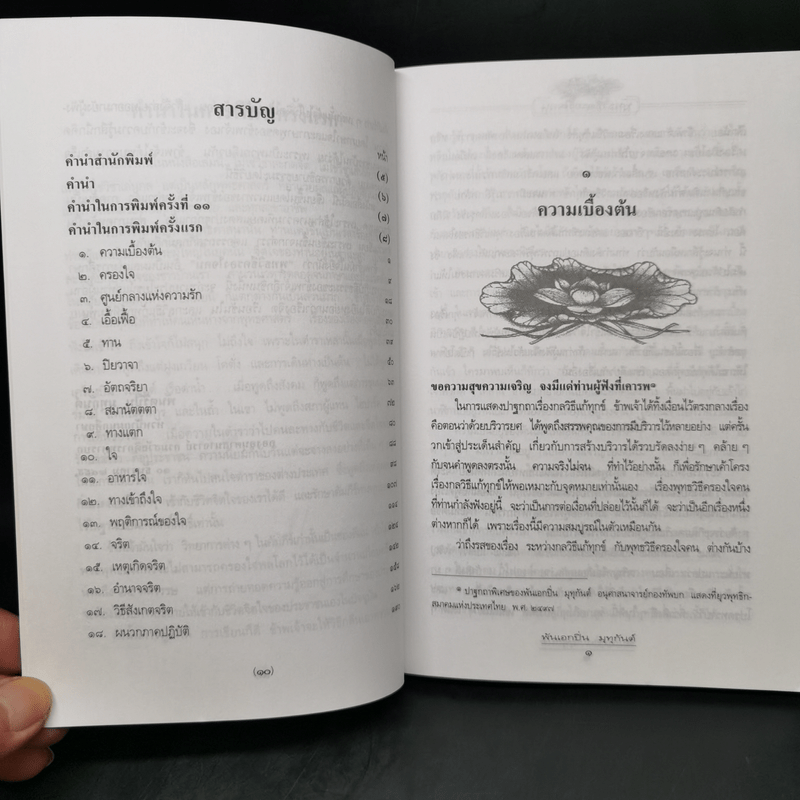 สารบัญ
หน้า
คำนำสำนักพิมพ์ (๕)
คำนำ (๖)
คำนำในการพิมพ์ครั้งที่ ๑๑ (๗)
คำนำในการพิมพ์ครั้งแรก (๘)
๑. ความเบื้องต้น ๑
๒. ครองใจ
๓. ศูนย์กลางแห่งความรัก ๑๘
๔. เอื้อเฟื้อ ๓๐
๕. ทาน ๓๗
๖. ปิยวาจา ๕๐
๗. อัตถจริยา
๘. สมานัตตตา
๙. ทางแตก
๑๐. ใจ
๑๑. อาหารใจ
๑๒. ทางเข้าถึงใจ
๑๓. พฤติการณ์ของใจ
๑๔. จริต
๑๕. เหตุเกิดจริต
๑๖. อำนาจจริต
๑๗. วิธีสังเกตจริต
๑๘. ผนวกภาคปฏิบัติ
(๑๐)
๑
ความเบื้องต้น
ขอความสุขความเจริญ จงมีแด่ท่านผู้ฟังที่เคารพ*
ในการแสดงปาฐกถาเรื่องกลวิธีแก้ทุกข์ ข้าพเจ้าได้ทิ้งเงื่อนไว้ตรงกลางเรื่อง
คือตอนว่าด้วยบริวารยศ ได้พูดถึงสรรพคุณของการมีบริวารไว้หลายอย่าง แต่ครั้น
วกเข้าสู่ประเด็นสำคัญ เกี่ยวกับการสร้างบริวารได้รวบรัดลงง่าย ๆ คล้าย ๆ
กับจนคำพูดลงตรงนั้น ความจริงไม่จน ที่ทำไว้อย่างนั้น ก็เพื่อรักษาเค้าโครง
เรื่องกลวิธีแก้ทุกข์ให้พอเหมาะกับจุดหมายเท่านั้นเอง เรื่องพุทธวิธีครองใจคน
ที่ท่านกำลังฟังอยู่นี้ จะว่าเป็นการต่อเงื่อนที่ปล่อยไว้นั้นก็ได้ จะว่าเป็นอีกเรื่องหนึ่ง
ต่างหากก็ได้ เพราะเรื่องนี้มีความสมบูรณ์ในตัวเหมือนกัน
ว่าถึงรสของเรื่อง ระหว่างกลวิธีแก้ทุกข์ กับพุทธวิธีครองใจคน ต่างกันบ้าง
* ปาฐกถาพิเศษของพันเอกปิ่น มุทุกันต์ อนุศาสนาจารย์กองทัพบก แสดงที่ยุวพุทธิก-
สมาคมแห่งประเทศไทย พ.ศ. ๒๔๙๗
พันเอกปิ่น มุทุกันต์
๑